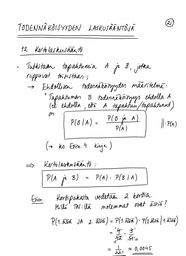 2)
TODENNÄKÖISYYDEN LASKUSÄÄNTÖJÄ
12 Kertolaskusääntö
• Tutkitaan tapahtumia A ja B, jotka
riippuvat toisistaan;
→ Ehdollisen todennäköisyyden määritelmä:
" Tapahtuman B todennäköisyys ehdolla A
(eli ehdolla, että A tapahtuu/tapahtunut)
on
P(B|A) = P(B ja A) / P(A) || · P(A)
(→ ks. Esim. 4 kirja)
⇒ Kertolaskusääntö:
P(A ja B) = P(A) · P(B|A)
Esim. Korttipakasta vedetään 2 korttia.
Millä tn:llä molemmat ovat
= 4/52 · 3/51
= 1/221 ≈ 0,0045